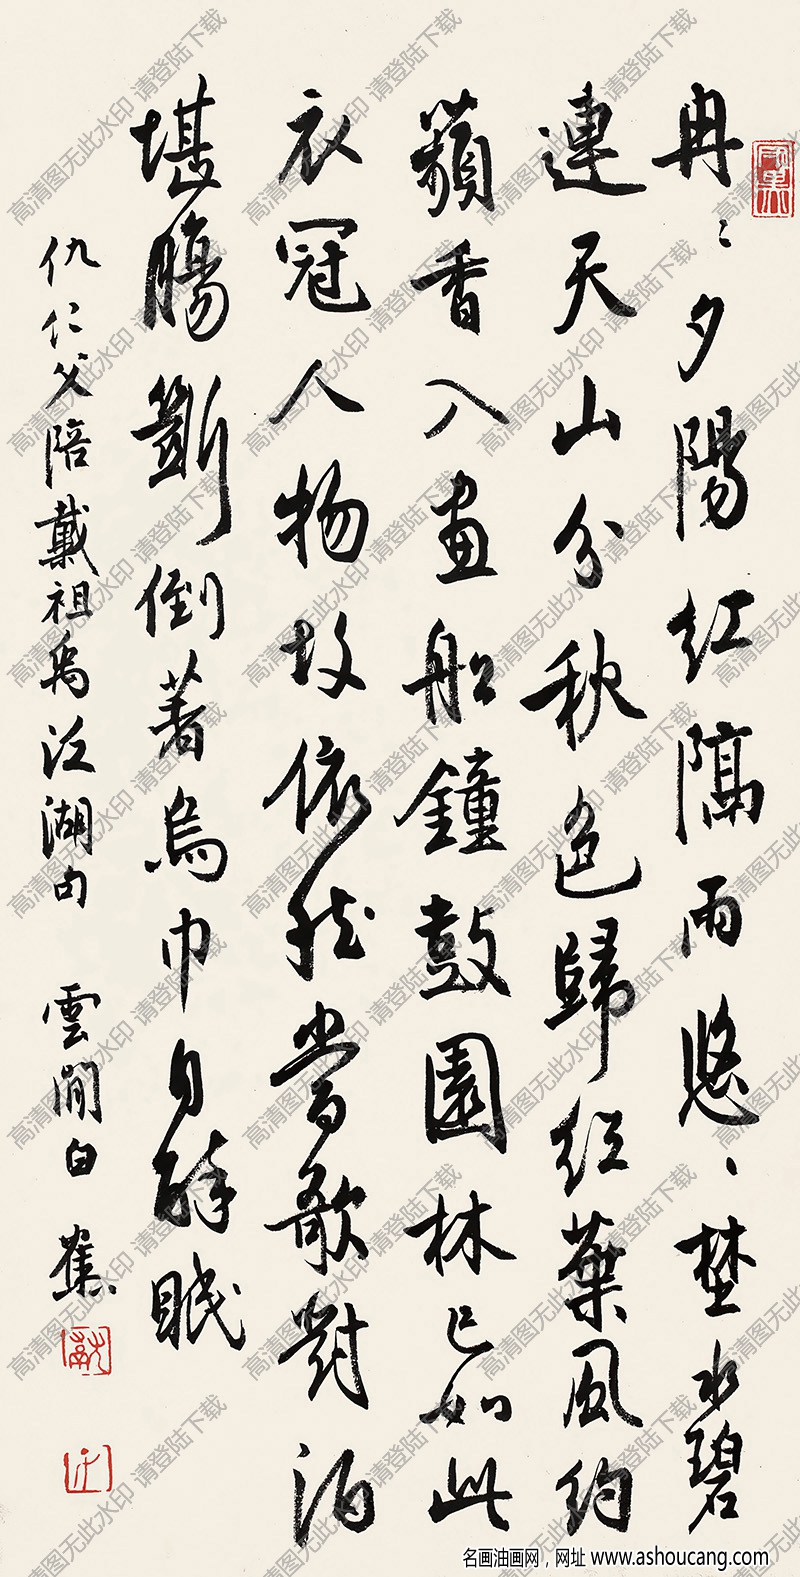 冉〻夕陽紅隔雨悠〻埜水碧
連天山分秋色歸紅葉風約
蘋香入畫船鐘鼓園林已如此
衣冠人物故依然當歌對酒
堪腸斷倒著烏巾自醉眠
仇仁父陪戴祖禹泛湖句 雲間白蕉
高清图无此水印 请登陆下载
名画油画网，网址 www.ashoucang.com